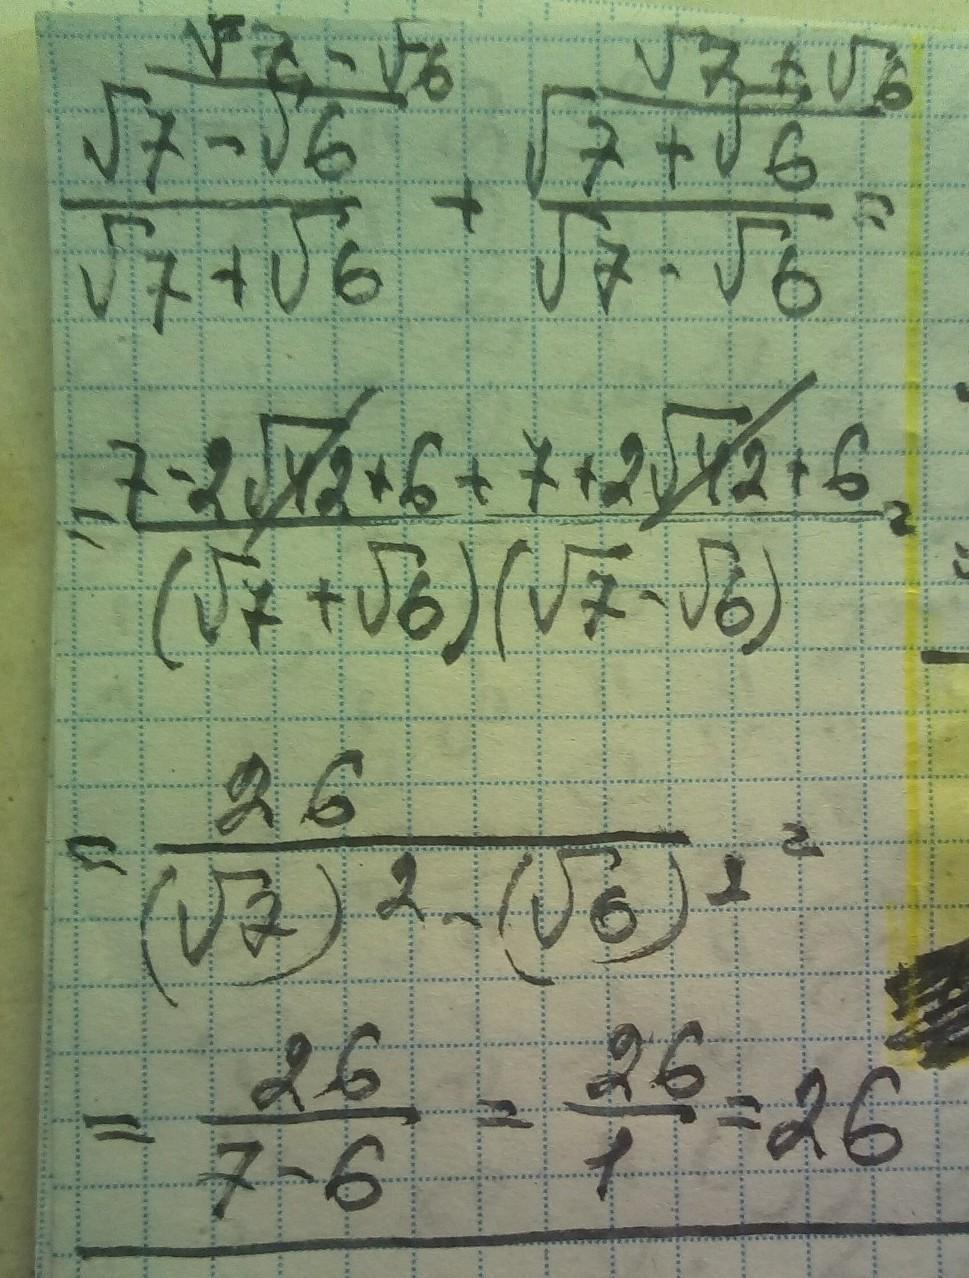 √7 - √6 √7 + √6
√7 - √6 / √7 + √6 + √7 + √6 / √7 - √6 =
= 7 - 2√42 + 6 + 7 + 2√42 + 6 / (√7 + √6)(√7 - √6) =
= 26 / (√7)² - (√6)² =
= 26 / 7 - 6 = 26 / 1 = 26